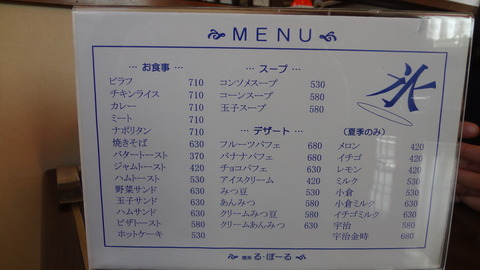 MENU
… お食事 …
ピラフ 710
チキンライス 710
カレー 710
ミート 710
ナポリタン 710
焼きそば 630
バタートースト 370
ジャムトースト 420
ハムトースト 530
野菜サンド 630
玉子サンド 630
ハムサンド 630
ピザトースト 580
ホットケーキ 530
… スープ …
コンソメスープ 530
コーンスープ 580
玉子スープ 580
… デザート …
フルーツパフェ 680
バナナパフェ 630
チョコパフェ 630
アイスクリーム 420
みつ豆 530
あんみつ 580
クリームみつ豆 580
クリームあんみつ 630
氷
(夏季のみ)
メロン 420
イチゴ 420
レモン 420
ミルク 530
小倉 530
小倉ミルク 630
イチゴミルク 630
宇治 580
宇治金時 680
る・ぽーる